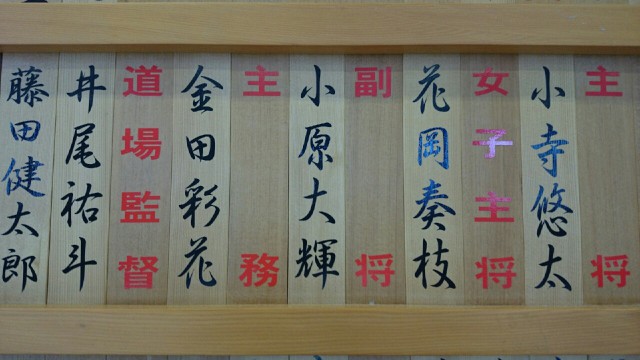 主将
小寺悠太
女子主将
花岡奏枝
副将
小原大輝
主務
金田彩花
道場監督
井尾祐斗
藤田健太郎